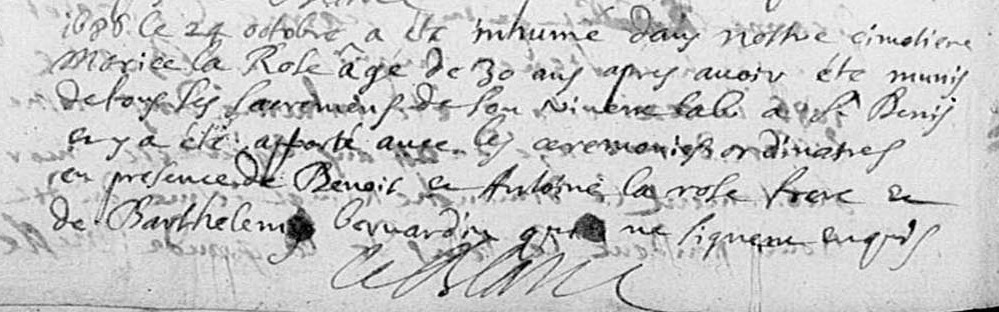 1688 le 24 octobre a été inhumé dans nostre cimetiere
la Rose âgé de 30 ans apres avoir été munis
de tous les sacremens de son a st Denis
en y a été apporté avec les ceremonies ordinaires
en presence de Benoit et Antoine la rose frere et
de Barthelemy bernardin qui ne signent enquis